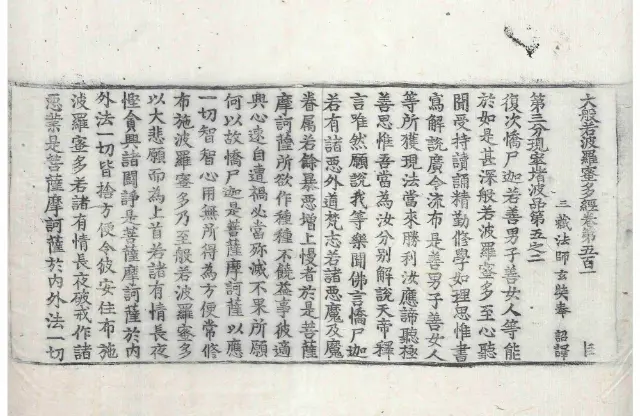 大般若波羅蜜多經卷第五百一
三藏法師玄奘奉 詔譯
第三分現窣堵波品第五之二
復次憍尸迦若善男子善女人等能
於如是甚深般若波羅蜜多至心聽
聞受持讀誦精勤修學如理思惟書
寫解說廣令流布是善男子善女人
等所獲現法當來勝利汝應諦聽極
善思惟吾當為汝分別解說天帝釋
言唯然願說我等樂聞佛言憍尸迦
若有諸惡外道梵志若諸惡魔及魔
眷屬若餘暴惡增上慢者於是菩薩
摩訶薩所欲作種種不饒益事彼適
興心遠自遭禍必當殄滅不果所願
何以故憍尸迦是菩薩摩訶薩以應
一切智智心用無所得為方便常修
布施波羅蜜多乃至般若波羅蜜多
以大悲願而為上首若諸有情長夜
慳貪興諸鬪諍是菩薩摩訶薩於內
外法一切皆捨方便令彼安住布施
波羅蜜多若諸有情長夜破戒作諸
惡業是菩薩摩訶薩於內外法一切